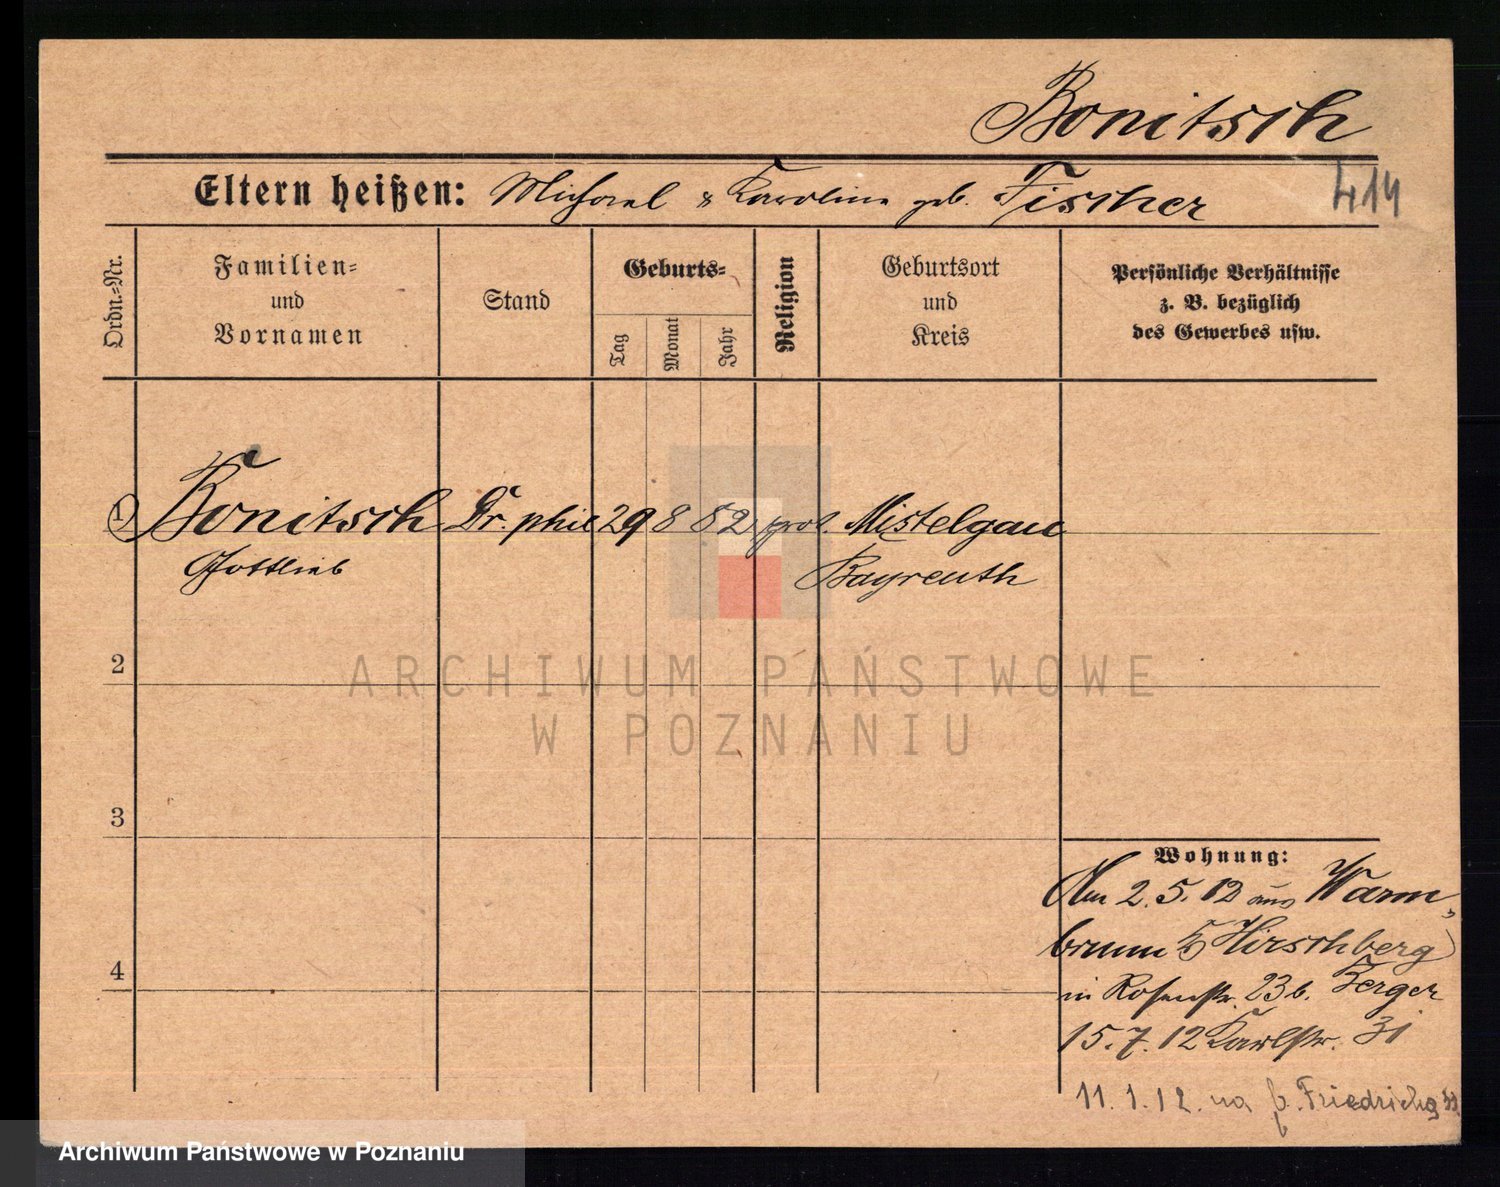 Bonitsch
Eltern heißen: Michael & Karoline geb. Fischer
414
Ordn.-Nr.
Familien-
und
Vornamen
Stand
Geburts-
Tag
Monat
Jahr
Religion
Geburtsort
und
Kreis
Persönliche Verhältnisse
z. B. bezüglich
des Gewerbes usw.
1 Bonitsch Dr. phil 29 8 82 prot. Mistelgau
Gottlieb Bayreuth
2
ARCHIWUM PAŃSTWOWE
W POZNANIU
3
Wohnung:
Am 2.5.12 aus Warm-
brunn Hirschberg
in Rosenstr. 23 b. Berger
4
15.7.12 Karlstr. 31
11.1.12. na Friedrichs
Archiwum Państwowe w Poznaniu